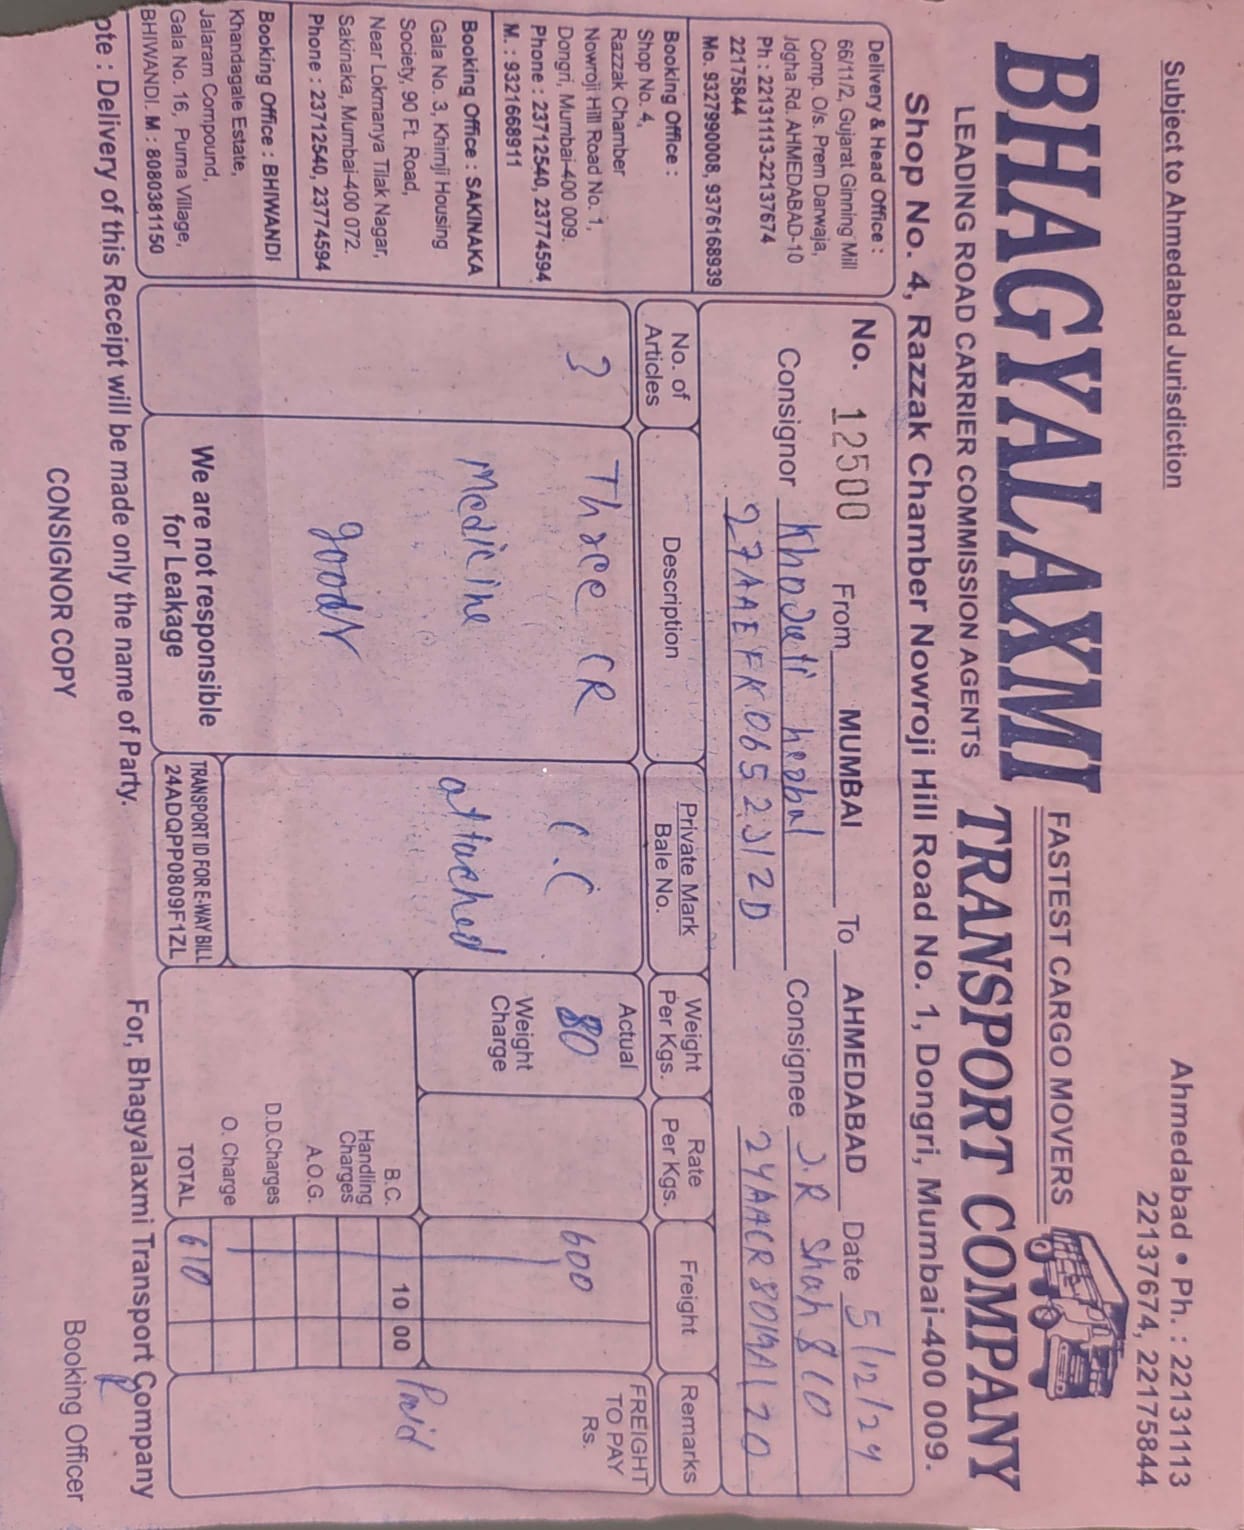 Subject to Ahmedabad Jurisdiction
Ahmedabad • Ph. : 22131113
22137674, 22175844
FASTEST CARGO MOVERS
BHAGYALAXMI TRANSPORT COMPANY
LEADING ROAD CARRIER COMMISSION AGENTS
Shop No. 4, Razzak Chamber Nowroji Hill Road No. 1, Dongri, Mumbai-400 009.
Delivery & Head Office :
66/11/2, Gujarat Ginning Mill
Comp. O/s. Prem Darwaja,
Idgha Rd. AHMEDABAD-10
Ph : 22131113-22137674
22175844
Mo. 9327990008, 9376168939
Booking Office :
Shop No. 4,
Razzak Chamber
Nowroji Hill Road No. 1,
Dongri, Mumbai-400 009.
Phone : 23712540, 23774594
M. : 9321668911
Booking Office : SAKINAKA
Gala No. 3, Khimji Housing
Society, 90 Ft. Road,
Near Lokmanya Tilak Nagar,
Sakinaka, Mumbai-400 072.
Phone : 23712540, 23774594
Booking Office : BHIWANDI
Khandagale Estate,
Jalaram Compound,
Gala No. 16, Purna Village,
BHIWANDI. M : 8080381150
No. 12500 From MUMBAI To AHMEDABAD Date 5/12/24
Consignor herbal Consignee J.R Shah
No. of Articles
Description
Private Mark
Bale No.
Weight Per Kgs.
Rate Per Kgs.
Freight
Remarks
3 Three CR C.C Actual 80 600 FREIGHT TO PAY Rs.
Medicine attached Weight Charge
goods
B.C. 10 00 Paid
Handling Charges
A.O.G.
D.D.Charges
O. Charge
TOTAL 610
We are not responsible
for Leakage
TRANSPORT ID FOR E-WAY BILL
24ADQPP0809F1ZL
ote : Delivery of this Receipt will be made only the name of Party.
For, Bhagyalaxmi Transport Company
CONSIGNOR COPY
Booking Officer